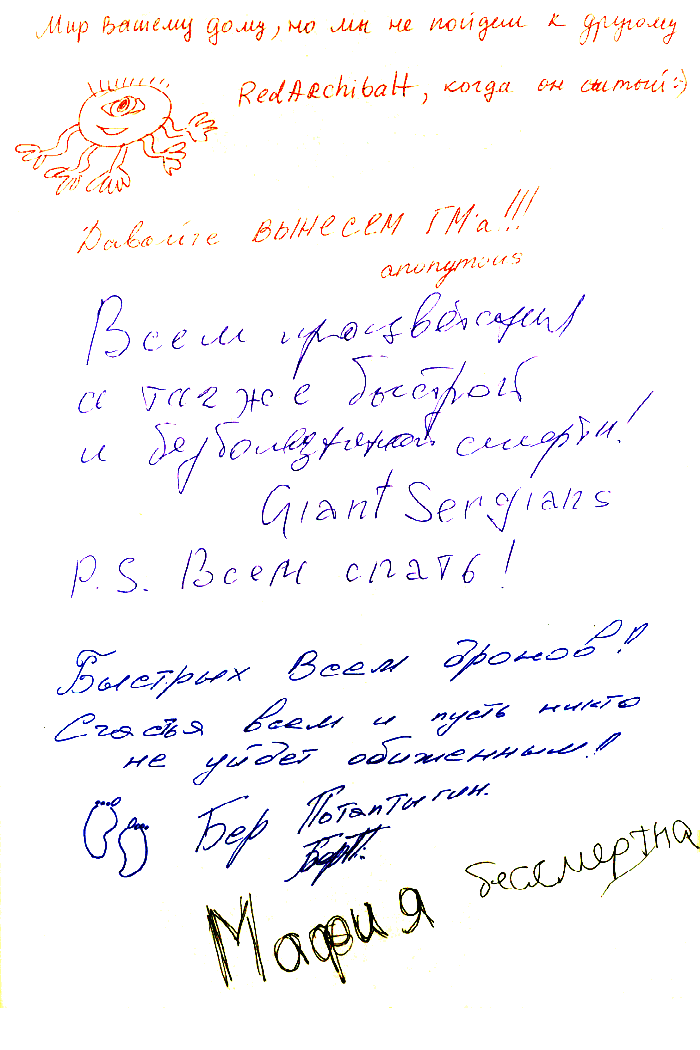 Мир вашему дому, но мы не пойдем к другому
RedArchibalt, когда он сытый:)
Давайте ВЫНЕСЕМ ГМ'а!!!
anonymous
Всем процветания
а также быстрой
и безболезненной смерти!
Giant Sergians
P.S. Всем спать!
Быстрых Всем дронов!!
Счастья всем и пусть никто
не уйдет обиженным!!
Бер Потаптыгин.
Мафия бессмертна